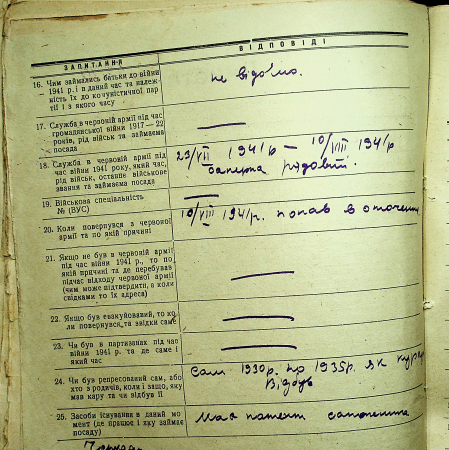 ЗАПИТАННЯ
ВІДПОВІДІ
16. Чим займались батьки до війни
– 1941 р. і в даний час та належ-
ність їх до комуністичної пар-
тії і з якого часу
не відомо.
17. Служба в червоній армії під час
громадянської війни 1917—22
років, рід військ та займаєма
посада
18. Служба в червоній армії під
час війни 1941 року, який час,
рід військ, останнє військове
звання та займаєма посада
23/VII 1941р — 10/VIII 1941р
рядовий.
19. Військова спеціальність
№ (ВУС)
20. Коли повернувся з червоної
армії та по якій причині
10/VIII 1941р. попав в оточення
21. Якщо не був в червоній армії
під час війни 1941 р., то по
якій причині та де перебував
підчас відходу червоної армії
(чим може підтвердити, а коли
свідками то їх адреса)
22. Якщо був евакуйований, то ко-
ли повернувся, та звідки саме
23. Чи був в партизанах під час
війни 1941 р. та де саме і
який час
24. Чи був репресований сам, або
хто з родичів, коли і защо, яку
мав кару та чи відбув її
Сам 1930р. по 1935р. як
Відбув
25. Засоби існування в даний мо-
мент (де працює і яку займає
посаду)
Має патент